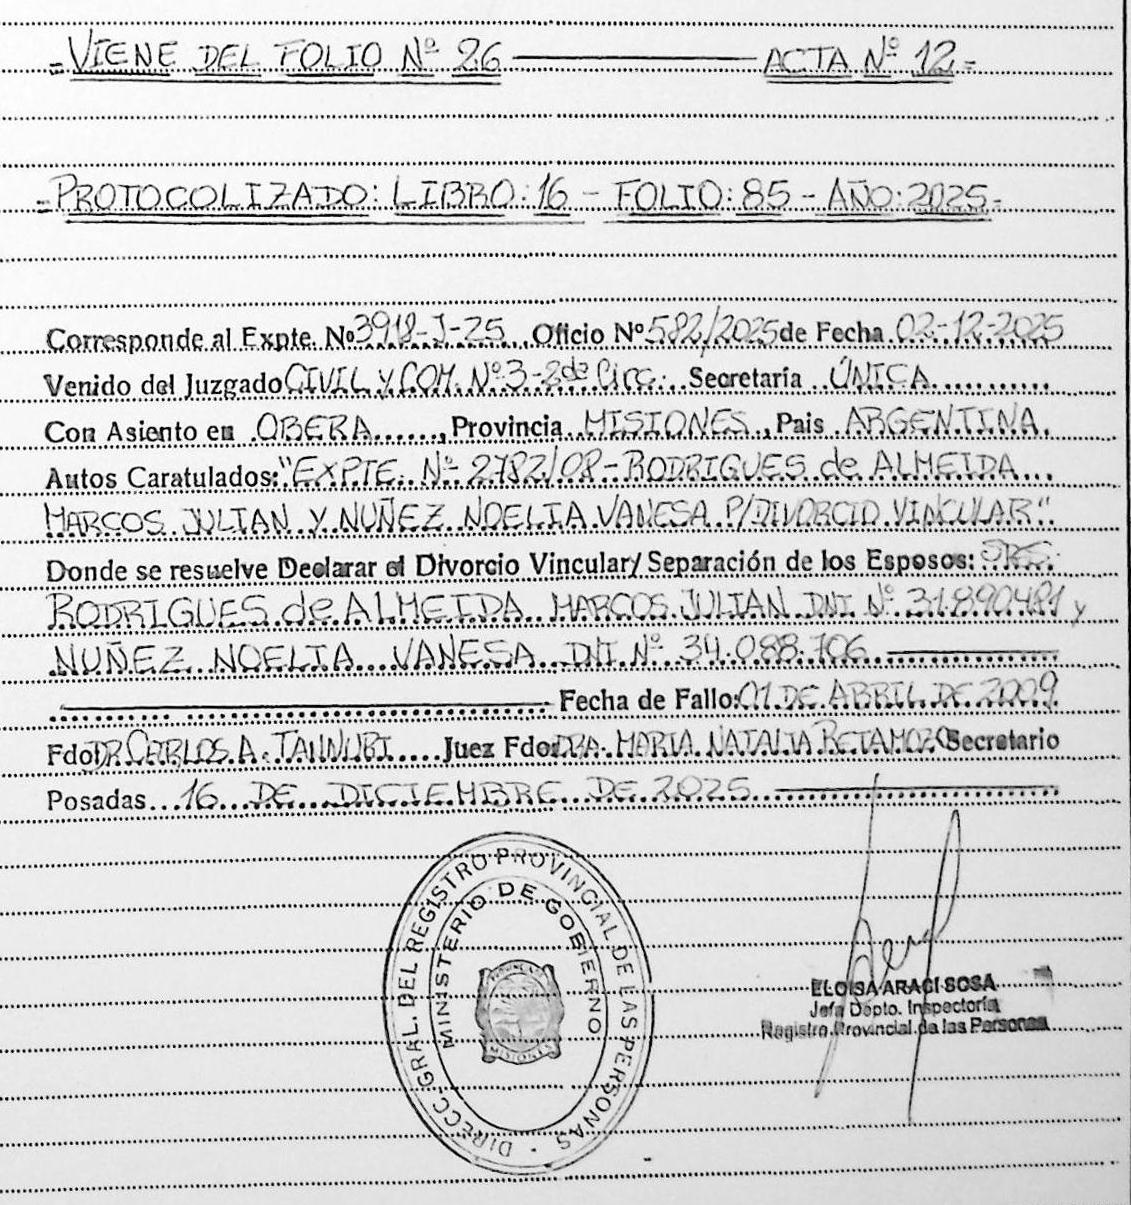 =VIENE DEL FOLIO Nº 26 ACTA Nº 12=
=PROTOCOLIZADO: LIBRO: 16 - FOLIO: 85 - AÑO: 2025=
Corresponde al Expte. Nº 3918-J-25 Oficio Nº 582/2025 de Fecha 02-12-2025
Venido del Juzgado CIVIL Y COM. Nº 3-2da Circ. Secretaría ÚNICA
Con Asiento en OBERA, Provincia MISIONES, Pais ARGENTINA.
Autos Caratulados: "EXPTE. Nº 2782/08 - RODRIGUES de ALMEIDA
MARCOS JULIAN Y NUÑEZ NOELIA VANESA P/DIVORCIO VINCULAR"
Donde se resuelve Declarar el Divorcio Vincular/ Separación de los Esposos: SRS.
RODRIGUES de ALMEIDA MARCOS JULIAN DNI Nº y
NUÑEZ NOELIA VANESA DNI Nº 34.088.706
Fecha de Fallo: 01 DE ABRIL DE 2009
Fdo DR CARLOS A. Juez Fdo: DRA. MARIA NATALIA RETAMOZO Secretario
Posadas 16 DE DICIEMBRE DE 2025
DIRECC. GRAL. DEL REGISTRO PROVINCIAL DE LAS PERSONAS
MINISTERIO DE GOBIERNO
MISIONES
ELOISA ARACI SOSA
Jefa Dpto. Inspectoría
Registro Provincial de las Personas